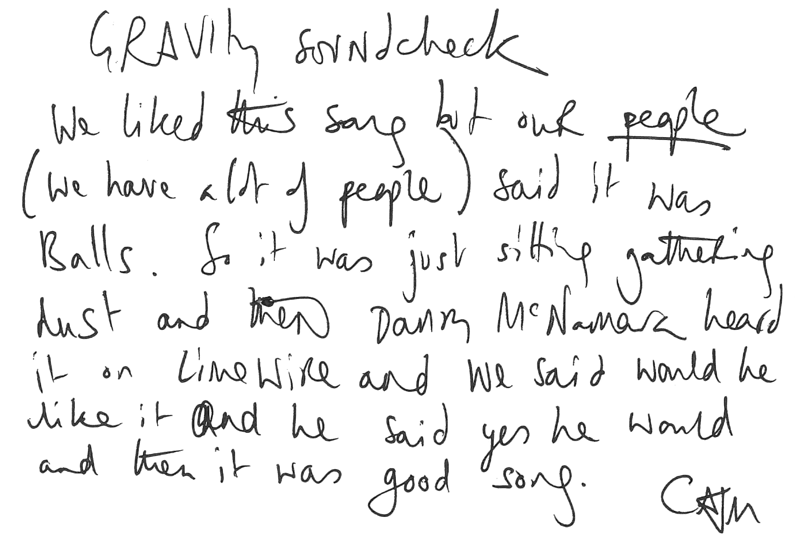 GRAVITY soundcheck
We liked this song but our people
(we have a lot of people) said it was
Balls. So it was just sitting gathering
dust and then Danny McNamara heard
it on LimeWire and we said would he
like it and he said yes he would
and then it was good song.
CAJM